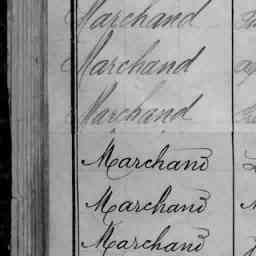 Marchand
Marchand
Marchand
Marchand
Marchand
Marchand